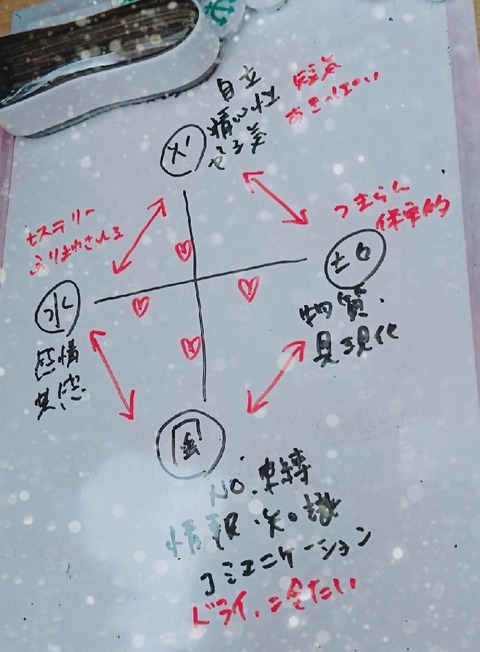 自立
精神性
短気
あきっぽい
火
ヒステリー
ふりまわされる
つまらん
保守的
水
土
感情
共感
物質・
具現化
風
NO.束縛
情報・知識
コミュニケーション
ドライ、冷たい